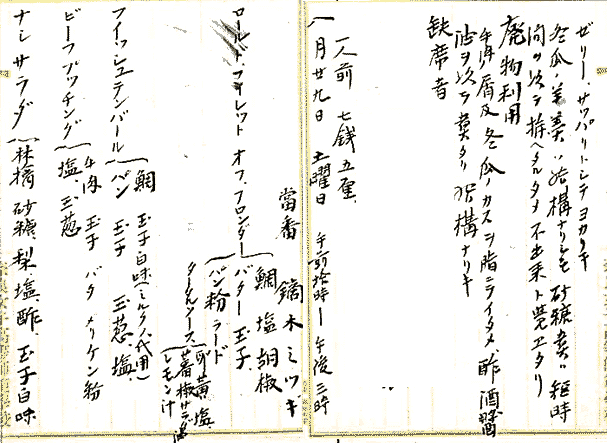 ゼリー、サッパリトシテヨカリキ
冬瓜ノ羊羹ハ結構ナリシモ砂糖煮ハ短時
間ヲ以テ拵ヘタルタメ不出来ト覚エタリ
廃物利用
牛肉屑及冬瓜ノカスヲ脂ニテイタメ酢酒醤
油ヲ以テ煮タリ結構ナリキ
欠席者
一人前 七銭五厘
一月廿九日 土曜日 午前拾時ー午後三時
當番 鏑木ミツキ
ロールド、フィレット オフ、フロンダー
鯛 塩 胡椒
バター 玉子
パン粉 ラード
タータルソース
卵黄 塩
芥椒 サラダ油
レモン汁
フイッシュテンバール
鯛 玉子白味(ミルクノ代用)
パン 玉子 玉葱 塩
ビーフプッチング
牛肉 玉子 バタ メリケン粉
塩 玉葱
ナシサラダ 林檎 砂糖 梨 塩 酢 玉子白味